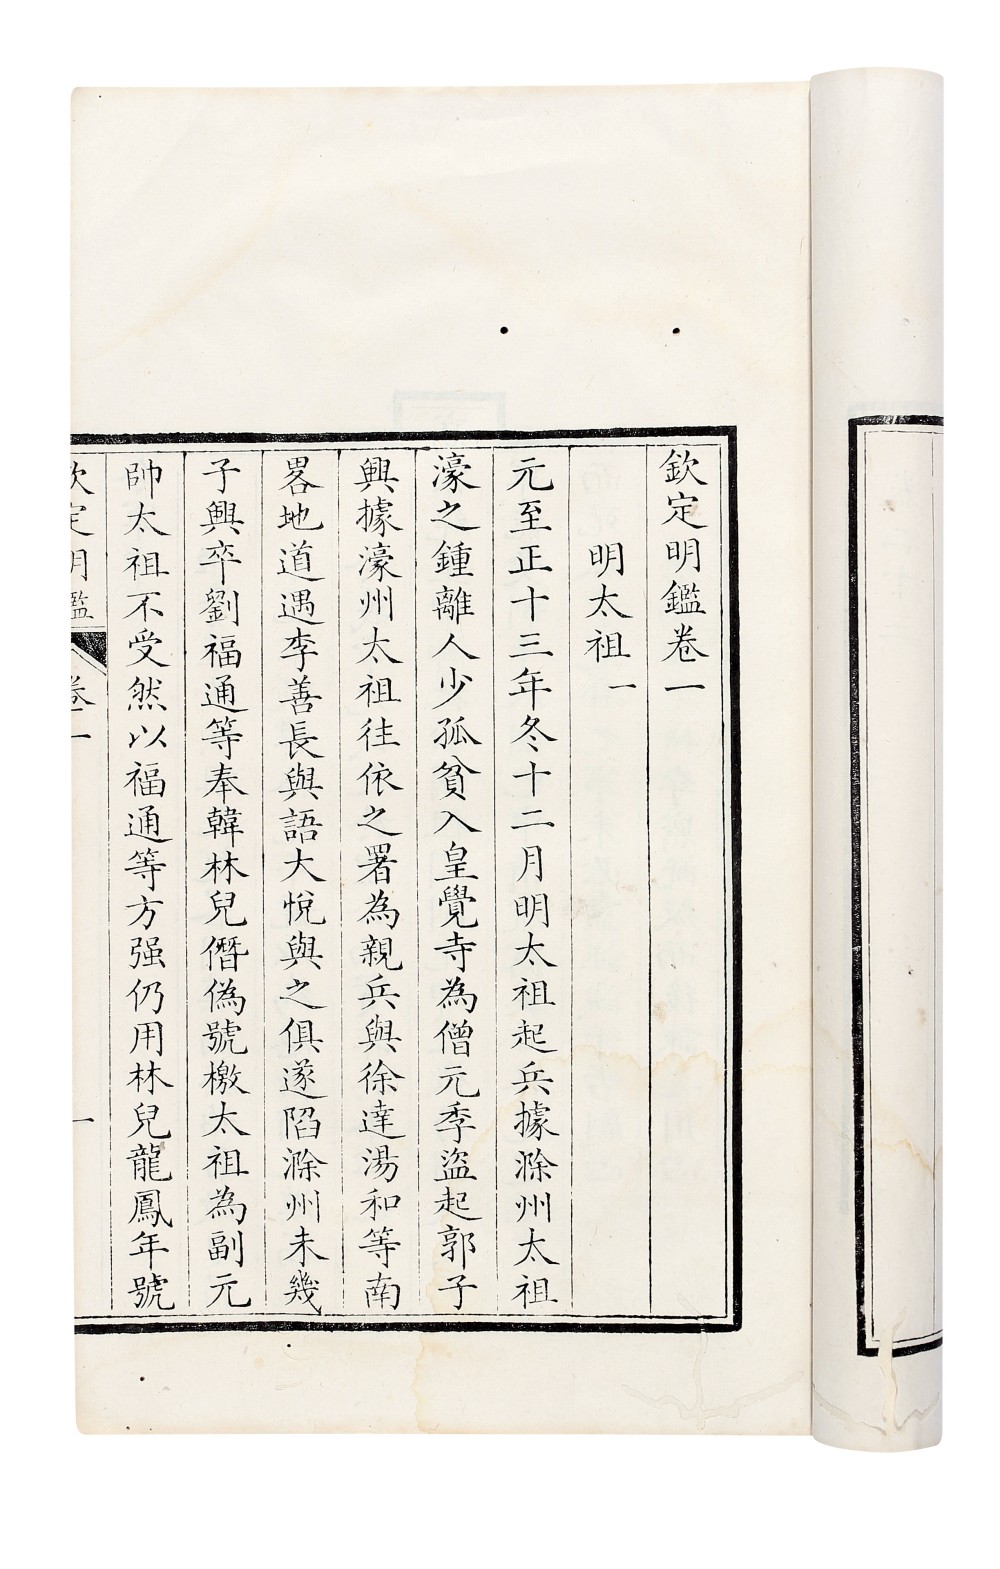 欽定明鑑卷一
明太祖一
元至正十三年冬十二月明太祖起兵據滁州太祖
濠之鍾離人少孤貧入皇覺寺為僧元季盜起郭子
興據濠州太祖往依之署為親兵與徐達湯和等南
畧地道遇李善長與語大悅與之俱遂陷滁州未幾
子興卒劉福通等奉韓林兒僭偽號檄太祖為副元
帥太祖不受然以福通等方强仍用林兒龍鳳年號
欽定明鑑
卷一
一